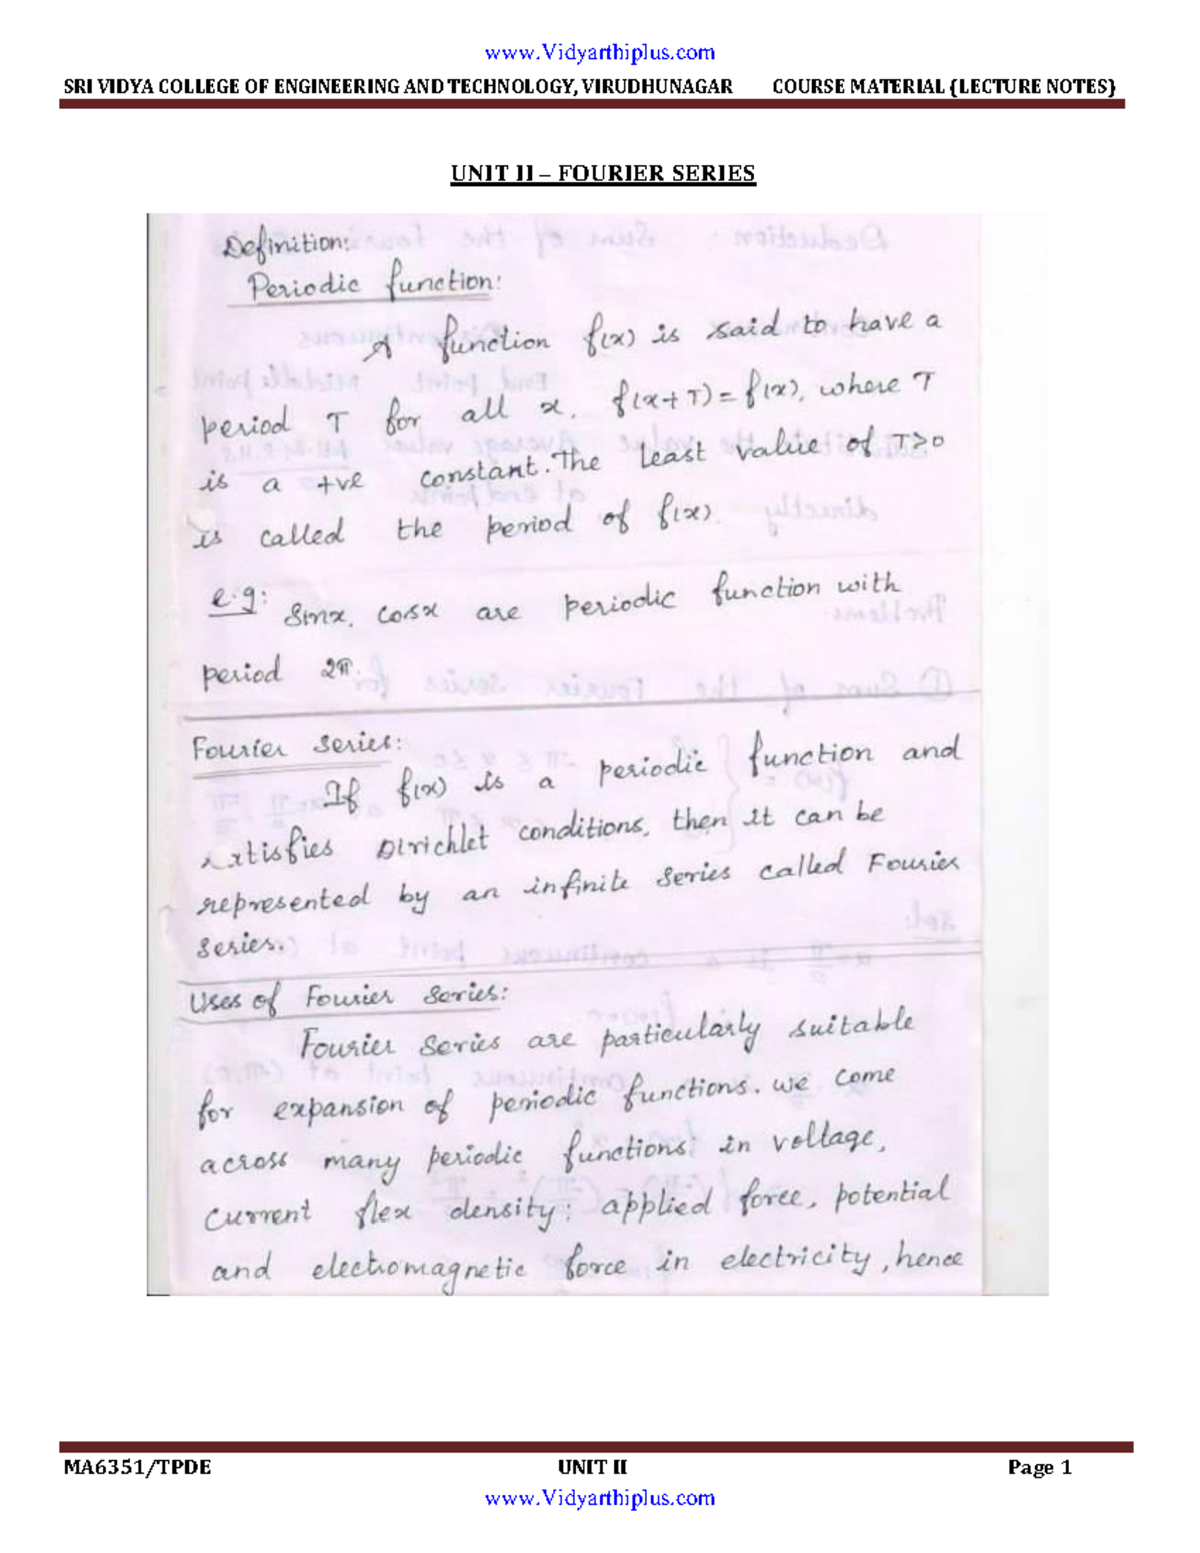 www.Vidyarthiplus.com
SRI VIDYA COLLEGE OF ENGINEERING AND TECHNOLOGY, VIRUDHUNAGAR COURSE MATERIAL {LECTURE NOTES}
UNIT II – FOURIER SERIES
Definition:
Periodic function:
A function f(x) is said to have a
period T for all x, f(x+T) = f(x), where T
is a +ve constant. The least value of T>0
is called the period of f(x).
e.g: Sinx, cosx are periodic function with
period 2π.
Fourier Series:
If f(x) is a periodic function and
satisfies Dirichlet conditions, then it can be
represented by an infinite series called Fourier
Series.
Uses of Fourier Series:
Fourier Series are particularly suitable
for expansion of periodic functions. we come
across many periodic functions in voltage,
Current flex density; applied force, potential
and electromagnetic force in electricity, hence
MA6351/TPDE UNIT II Page 1
www.Vidyarthiplus.com